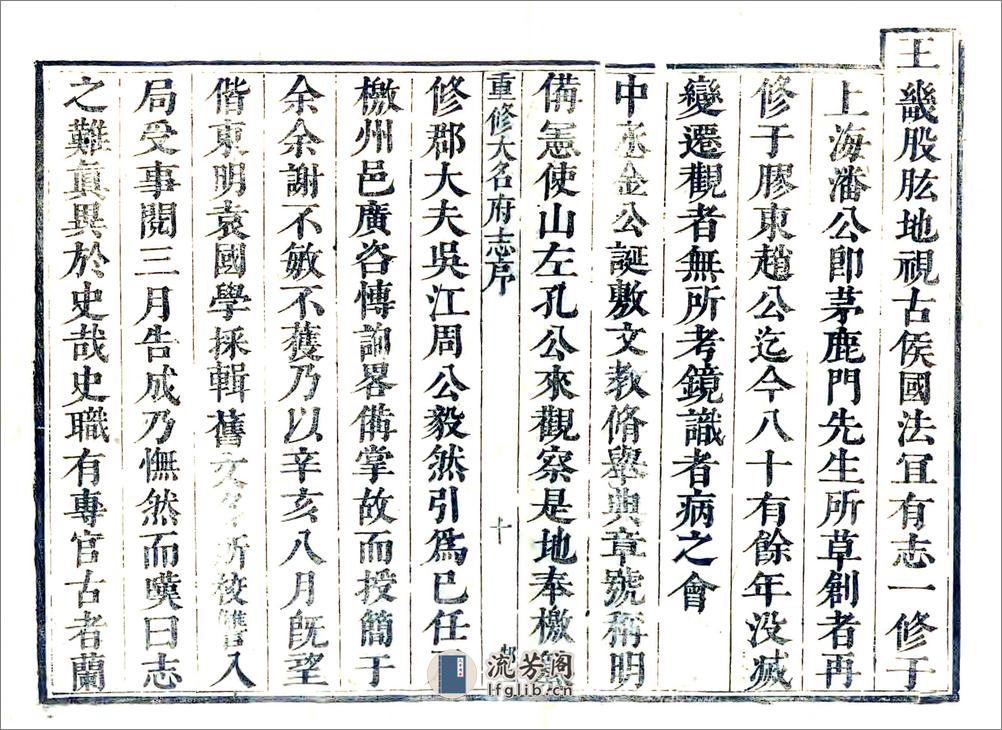 王
畿股肱地視古侯國法冝有志一修于
上海潘公卽茅鹿門先生所草創者再
修于膠東趙公迄今八十有餘年没㓕
變遷觀者無所考鏡識者病之會
中丞金公誕敷文敎脩舉典章號稱明
備憲使山左孔公來觀察是地奉檄
重修大名府志序
十
修郡大夫吳江周公毅然引爲已任下
檄州邑廣咨愽詢畧備掌故而授簡于
余余謝不敏不獲乃以辛亥八月旣望
偕東明袁國學採輯舊文 所校 入
局受事閱三月告成乃憮然而嘆曰志
之難眞異於史哉史職有專官古者蘭
流芳阁
lfglib.cn